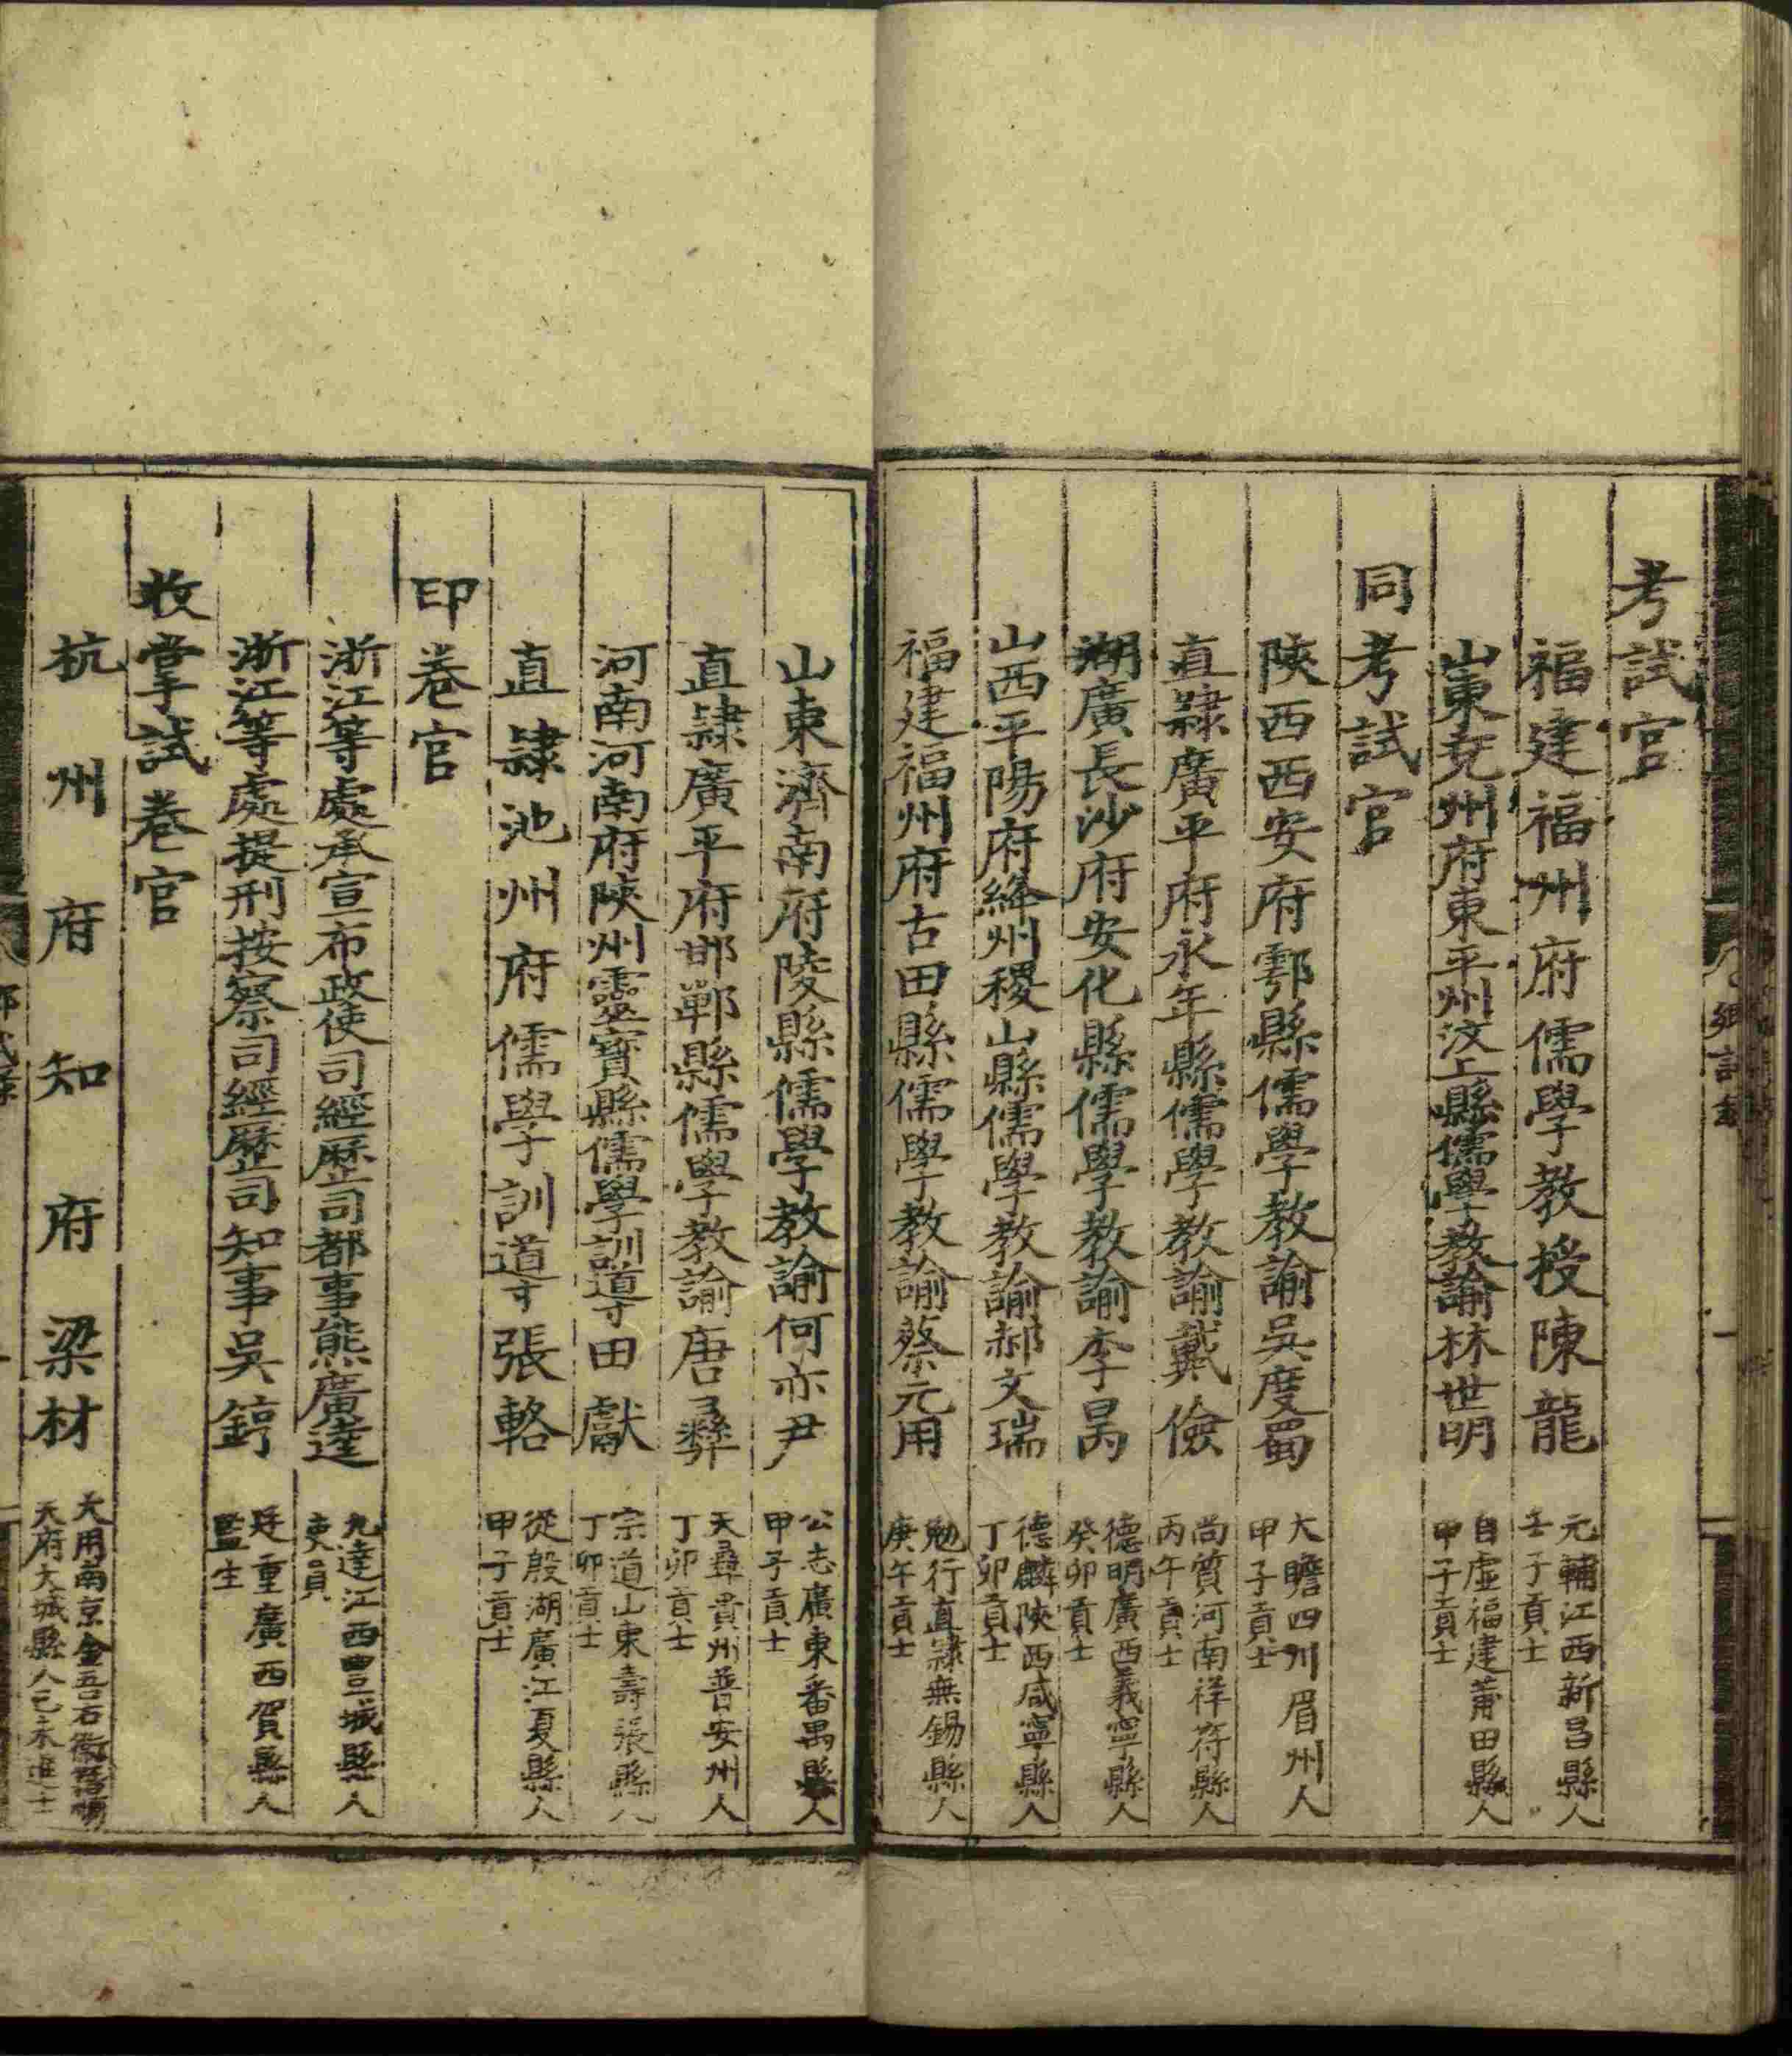 考試官
福建福州府儒學教授陳龍 元輔江西新昌縣人
壬子貢士
山東兗州府東平州汶上縣儒學教諭林世明 自虛福建莆田縣人
甲子貢士
同考試官
陝西西安府鄠縣儒學教諭吳度蜀 大瞻四川眉州人
甲子貢士
直隸廣平府永年縣儒學教諭戴儉 尚質河南祥符縣人
丙午貢士
湖廣長沙府安化縣儒學教諭李昺 德明廣西義寧縣人
癸卯貢士
山西平陽府絳州稷山縣儒學教諭郝文瑞 德麟陝西咸寧縣人
丁卯貢士
福建福州府古田縣儒學教諭蔡元用 勉行直隸無錫縣人
庚午貢士
山東濟南府陵縣儒學教諭何亦尹 公志廣東番禺縣人
甲子貢士
直隸廣平府邯鄲縣儒學教諭唐彞 天彞貴州普安州人
丁卯貢士
河南河南府陝州靈寶縣儒學訓導田獻 宗道山東壽張縣人
丁卯貢士
直隸池州府儒學訓導張輅 從殷湖廣江夏縣人
甲子貢士
印卷官
浙江等處承宣布政使司經歷司都事熊廣達 九逵江西豐城縣人
吏員
浙江等處提刑按察司經歷司知事吳錞 廷重廣西賀縣人
監生
收掌試卷官
杭州府知府梁材 大用南京金吾右衛籍順
天府大城縣人己未進士
鄉試錄